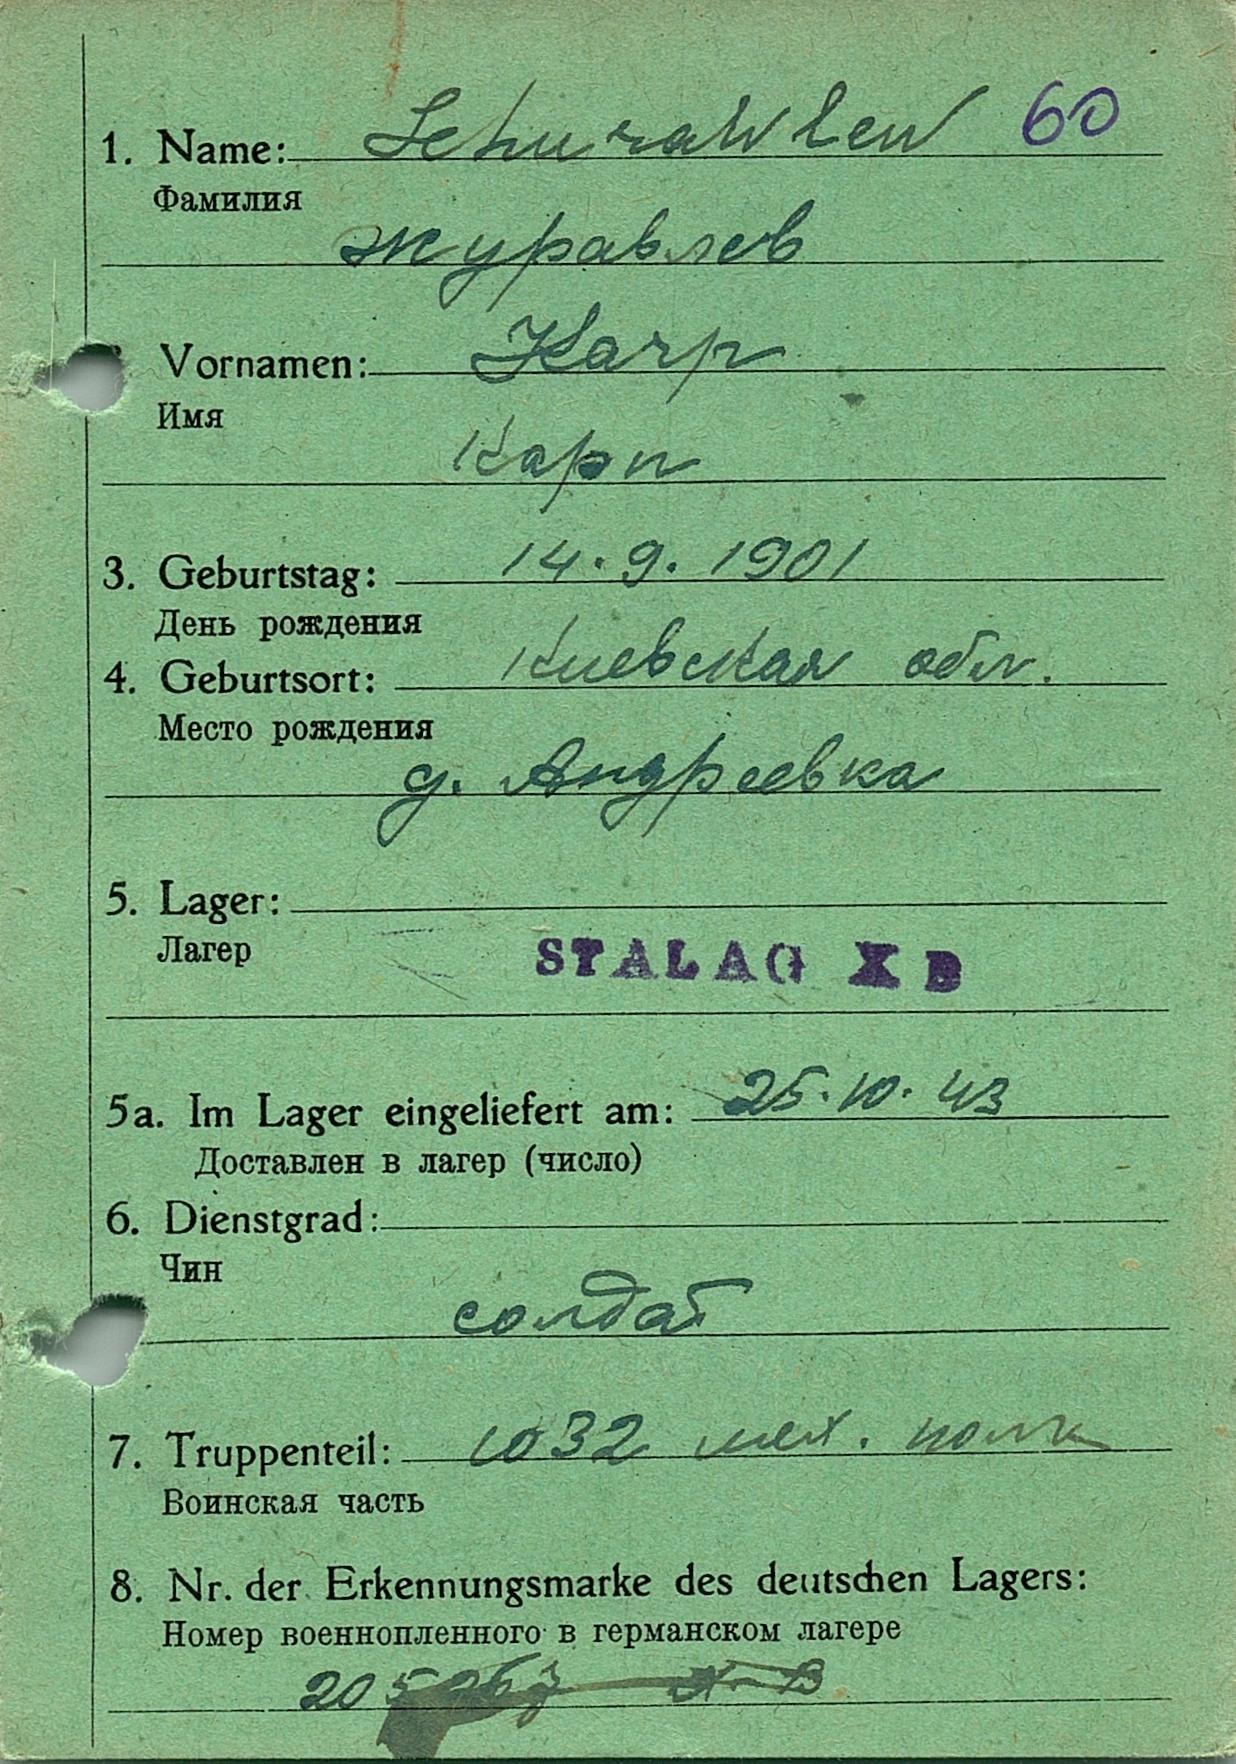 1. Name: Schurawlew 60
Фамилия
Журавлев
Vornamen: Karp
Имя
Карп
3. Geburtstag: 14.9.1901
День рождения
4. Geburtsort: Киевская обл.
Место рождения
д. Андреевка
5. Lager:
Лагер
STALAG X B
5a. Im Lager eingeliefert am: 25.10.43
Доставлен в лагер (число)
6. Dienstgrad:
Чин
солдат
7. Truppenteil: 1032 мех. полк
Воинская часть
8. Nr. der Erkennungsmarke des deutschen Lagers:
Номер военнопленного в германском лагере
X-B